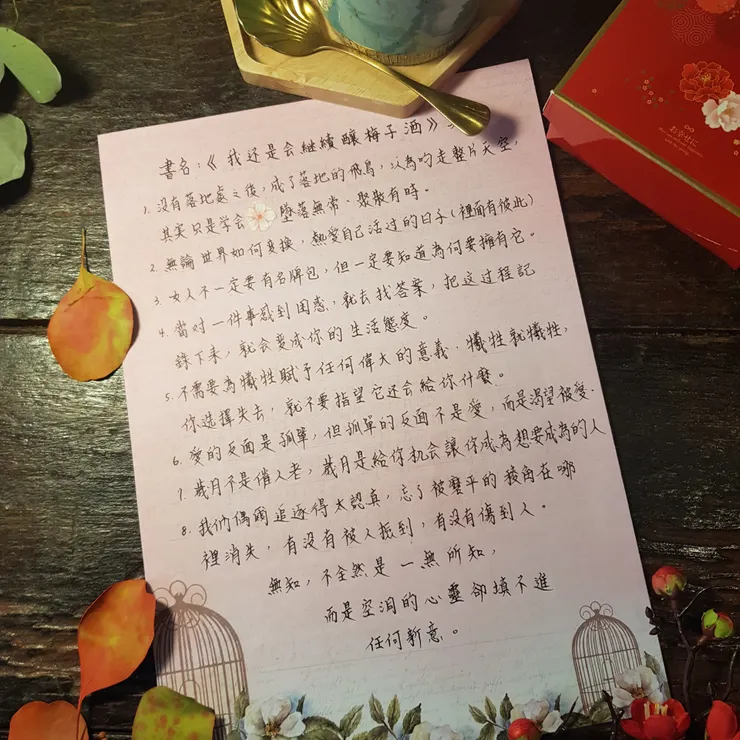 書名:《我还是会継續釀梅子酒》
1. 没有落地處之後,成了落地的飛鳥,以為吻走整片天空,
其实只是学会 墜落無常、聚散有時。
2. 無論世界如何变換,熱愛自己活过的日子(裡面有彼此)
3. 女人不一定要有名牌包,但一定要知道為何要擁有它。
4. 當对一件事感到困惑,就去找答案,把这过程記
錄下来,就会変成你的生活態度。
5. 不需要為犧牲賦予任何偉大的意義,犧牲就犧牲,
你选擇失去,就不要指望它还会給你什麼。
6. 愛的反面是孤單,但孤單的反面不是愛,而是渴望被愛.
7. 歲月不是催人老,歲月是給你机会讓你成為想要成為的人
8. 我們偶爾追逐得太認真,忘了被磨平的稜角在哪
裡消失,有没有被人撿到,有没有傷到人。
無知,不全然是一無所知,
而是空洞的心靈卻填不進
任何新意。
お幸せに